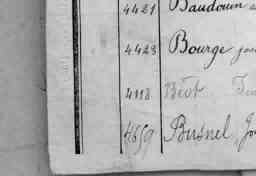 4421 Baudouin
4423 Bourge
4118 Béot
4659 Busnel, Jo